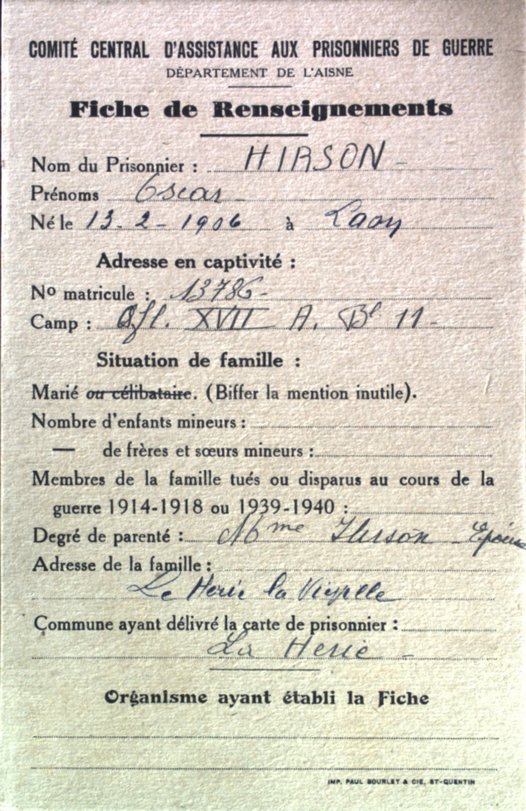 COMITÉ CENTRAL D'ASSISTANCE AUX PRISONNIERS DE GUERRE
DÉPARTEMENT DE L'AISNE
Fiche de Renseignements
Nom du Prisonnier : HIRSON
Prénoms Oscar
Né le 13-2-1906 à Laon
Adresse en captivité :
No matricule : 13786
Camp : Ofl. XVII A. Bl 11
Situation de famille :
Marié ou célibataire. (Biffer la mention inutile).
Nombre d'enfants mineurs :
— de frères et sœurs mineurs :
Membres de la famille tués ou disparus au cours de la
guerre 1914-1918 ou 1939-1940 :
Degré de parenté : Mme Hirson Epouse
Adresse de la famille :
Le Herie la Vieville
Commune ayant délivré la carte de prisonnier :
La Herie
Organisme ayant établi la Fiche
IMP. PAUL BOURLET & CIE, ST-QUENTIN